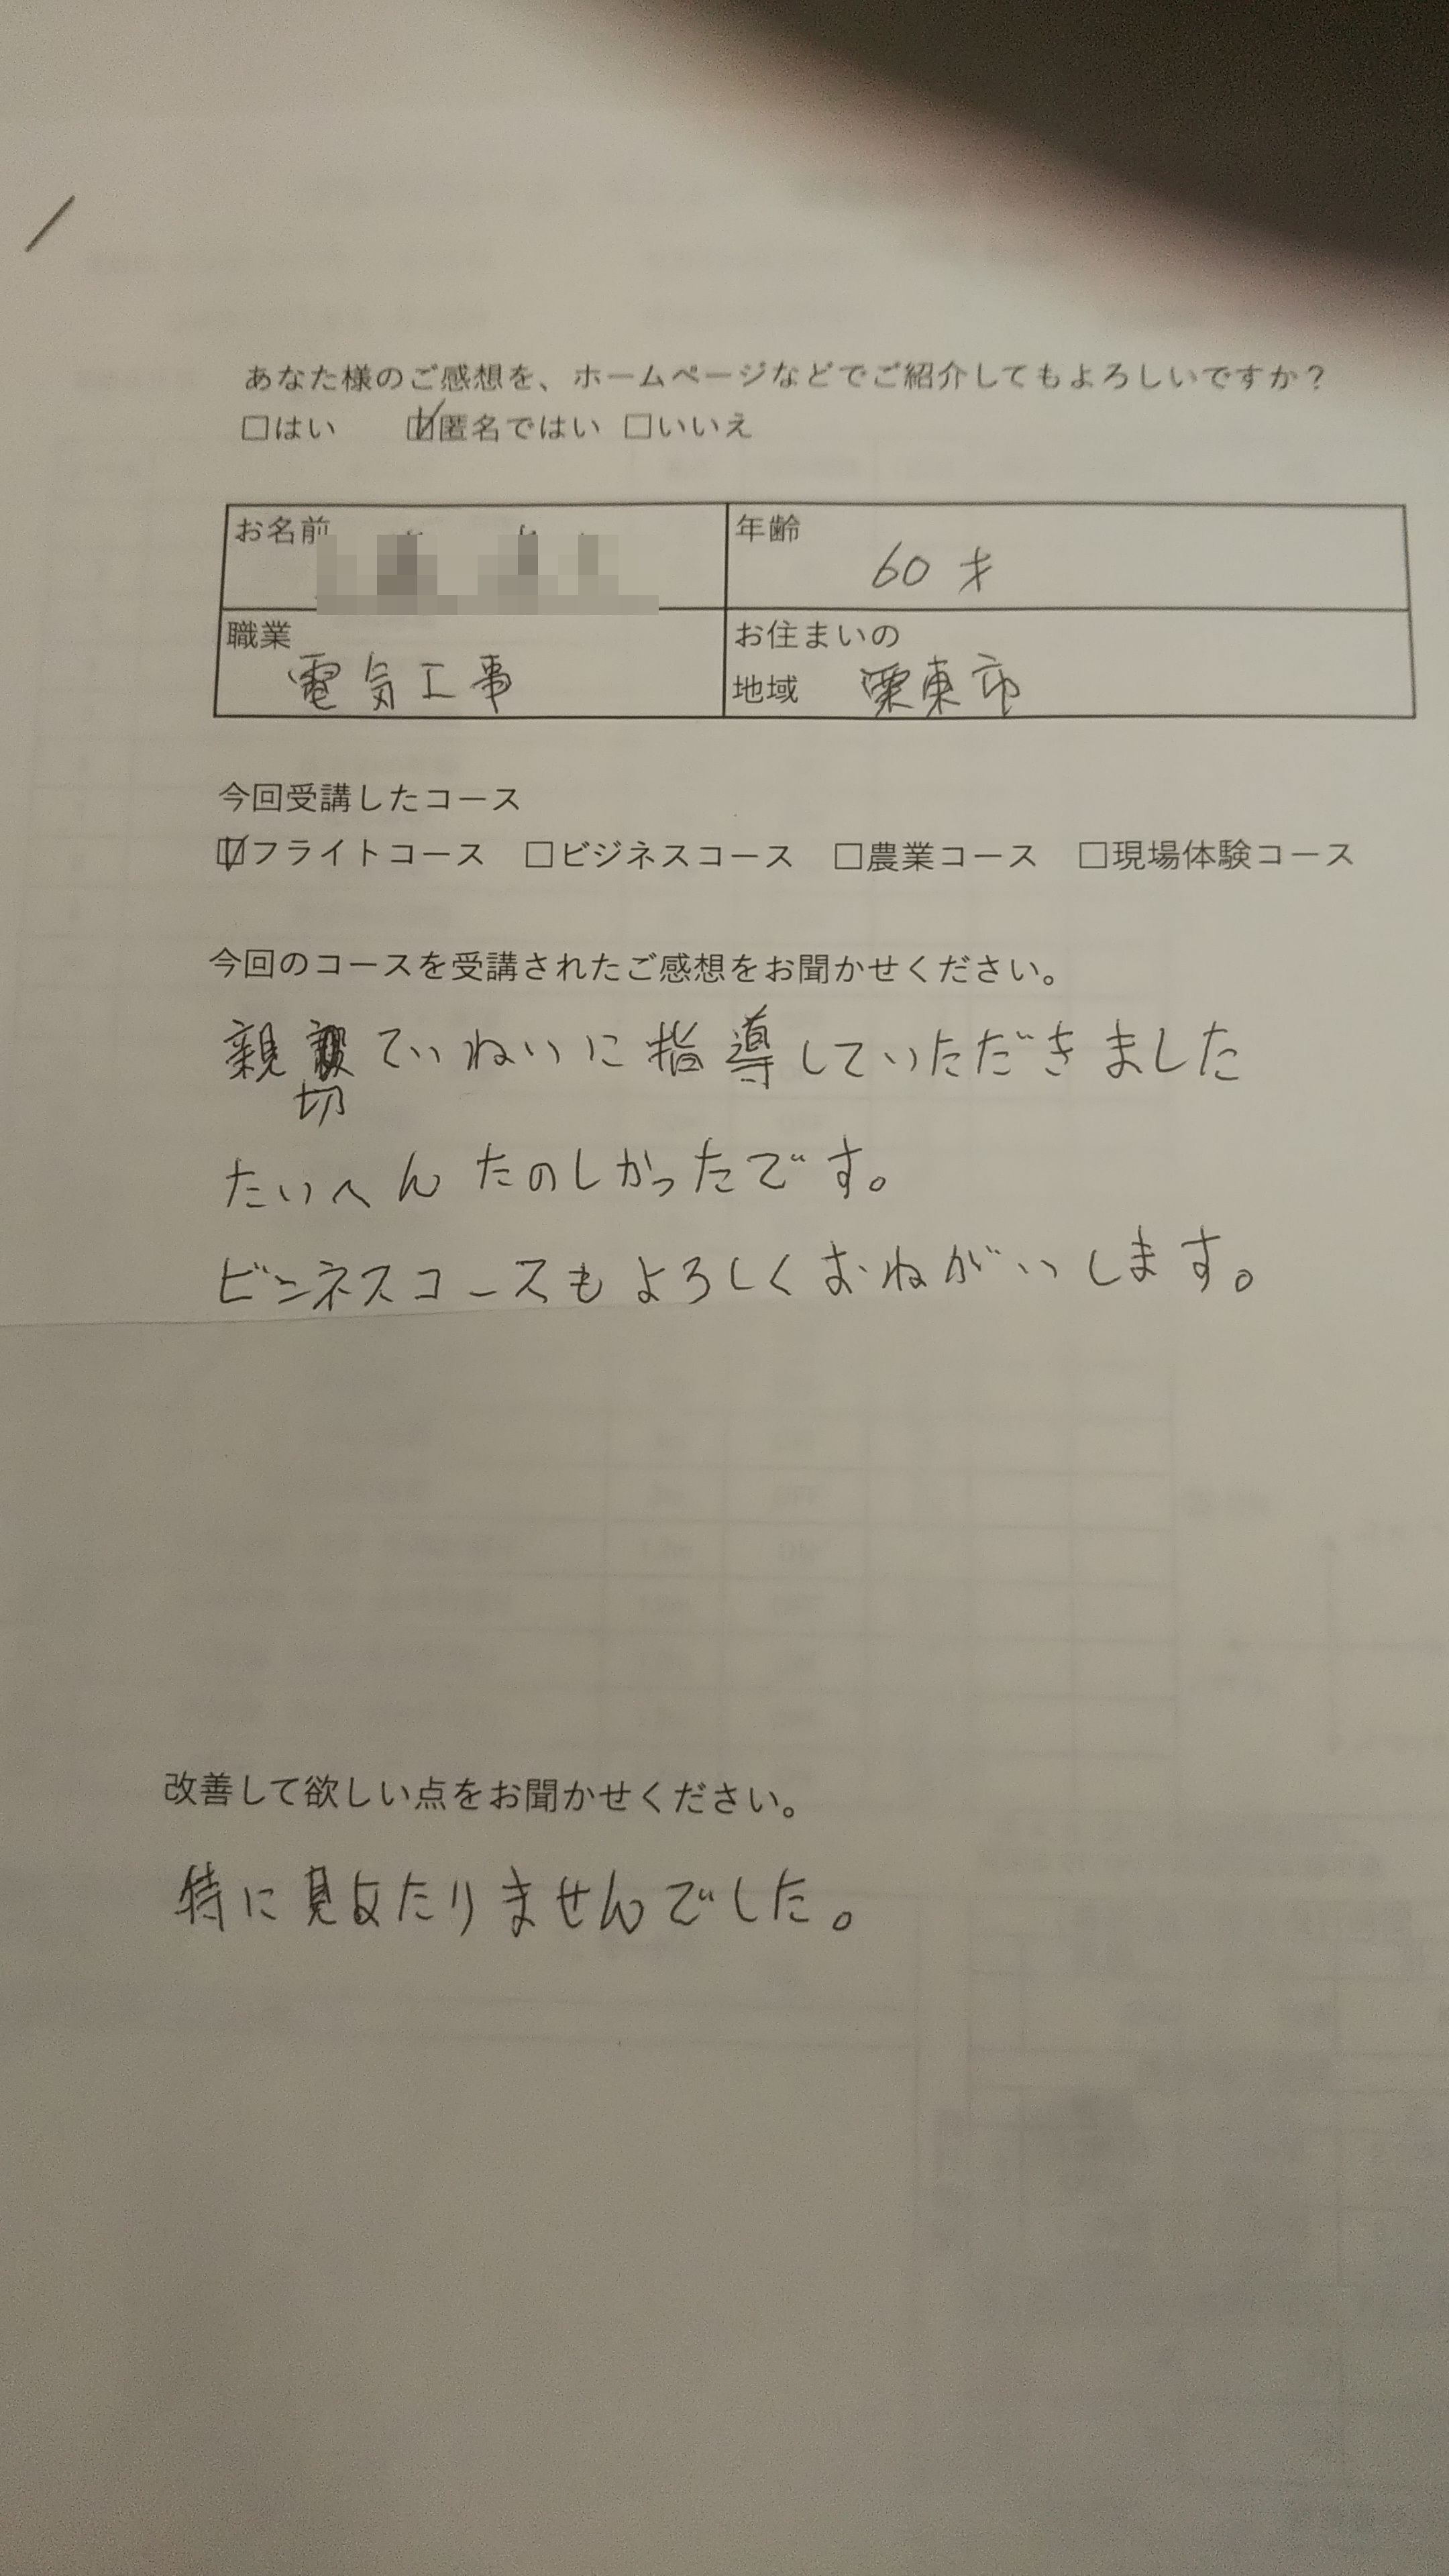 あなた様のご感想を、ホームページなどでご紹介してもよろしいですか？
□はい ☑匿名ではい □いいえ
お名前
年齢 60才
職業 電気工事
お住まいの
地域 栗東市
今回受講したコース
☑フライトコース □ビジネスコース □農業コース □現場体験コース
今回のコースを受講されたご感想をお聞かせください。
親切ていねいに指導していただきました
たいへんたのしかったです。
ビジネスコースもよろしくおねがいします。
改善して欲しい点をお聞かせください。
特に見あたりませんでした。